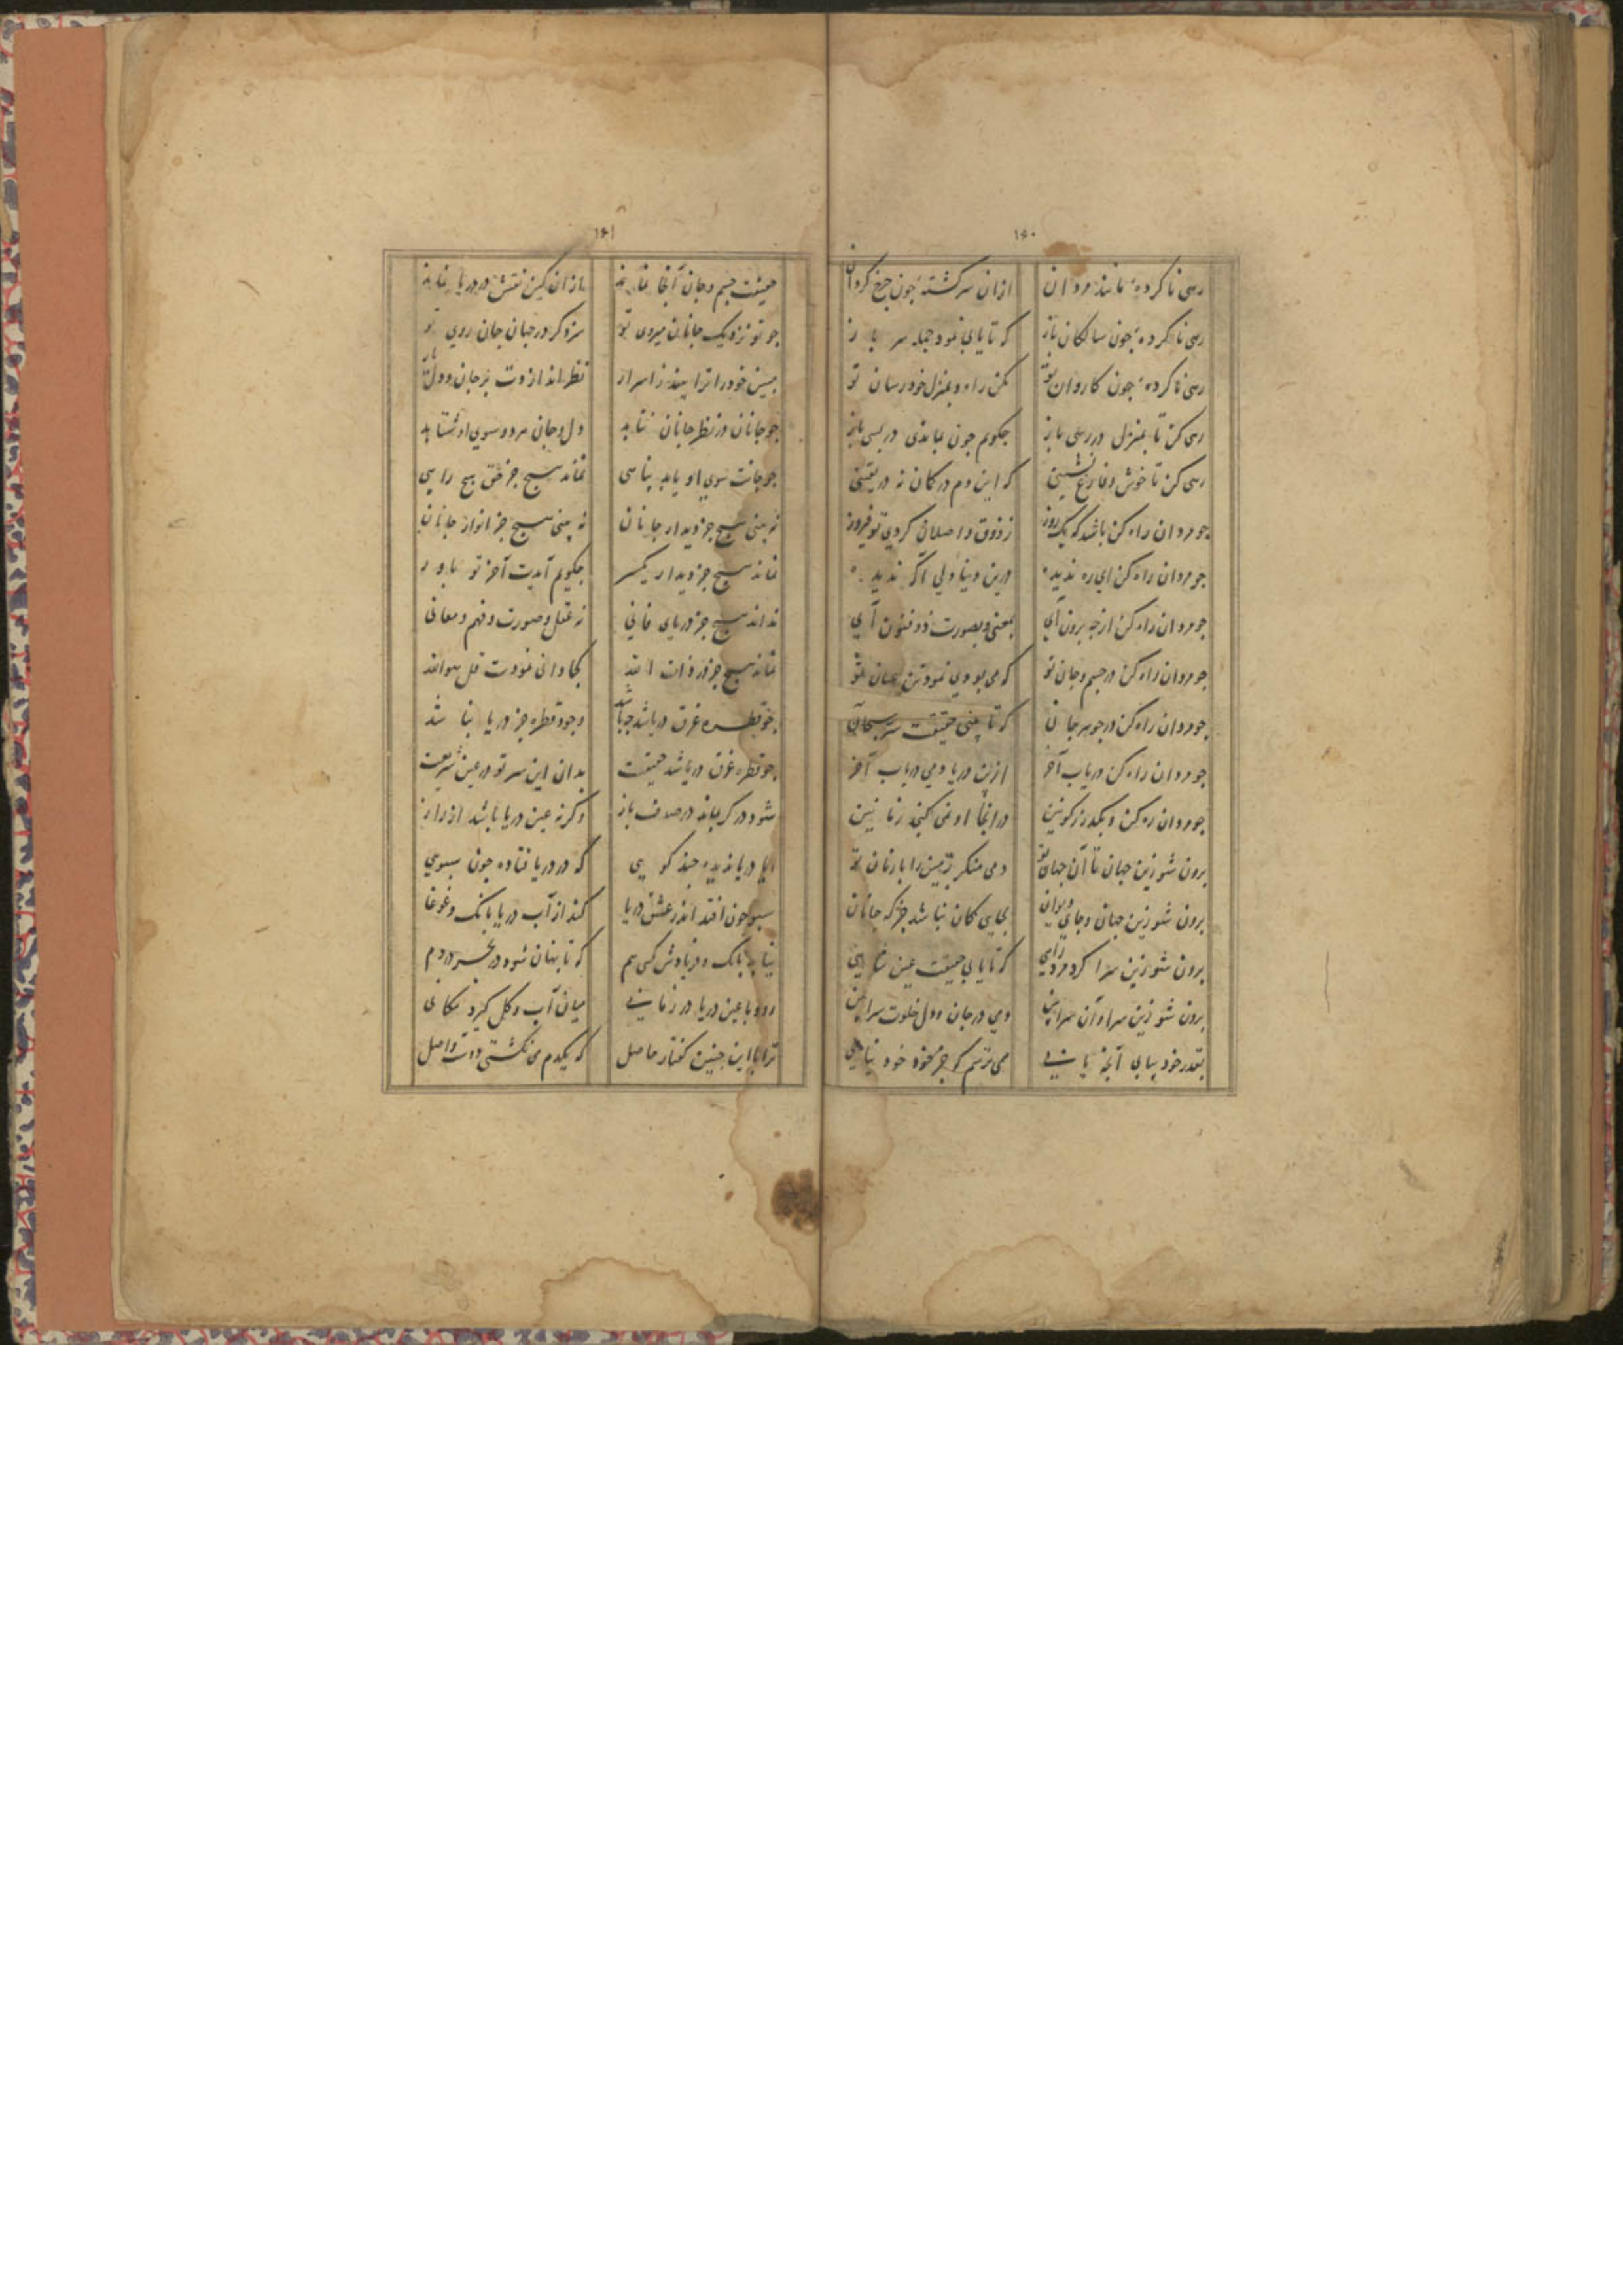 ۱۶۰
رهی ناکرده مانند مردان ازان سرکشته چون چرخ کردان
رهی ناکرده چون سالکان باز که تا یابی نمود جمله سر باز
رهی ناکرده چون کاروان تو مکن راه و بمنزل خود رسان تو
رهی کن تا بمنزل در رسی باز چکویم چون بماندی در پسی باز
رهی کن تا خوش و فارغ نشینی که این دم در کمان نه در یقینی
چو مردان راه کن باشد که یک روز ز ذوق واصلان کردی تو فیروز
چو مردان راه کن ای ره ندیده درین دنیا ولی اکه ندیده
چو مردان راه کن از خود برون آی بمعنی و بصورت ذو فنون آی
چو مردان راه کن در جسم و جان تو که می بودی نمود تن عیان تو
چو مردان راه کن در جوهر جان که تا بینی حقیقت سر سبحان
چو مردان راه کن دریاب آخر ازین دریا دمی دریاب آخر
چو مردان ره کن و بکذر ز کونین در انجا او نمی کنجد زمانین
برون شو زین جهان تا آن جهان تو دمی منکر زمین را با زمان تو
برون شو زین جهان و جای دیوان بجایی کان نباشد جز که جانان
برون شو زین سرا کرد مرد رایی که تا یابی حقیقت عین
برون شو زین سرا و آن سرا بین دمی در جان و دل خلوت سرا بین
بقدر خود بیابی آنچه یابی همی ترسم که جز خود خود نیابی
۱۶۱
حقیقت جسم و جان آنجا نماند ازان کین نقش در دریا نماند
چو تو نزدیک جانان میروی تو سزد کر در جهان جان روی تو
ببین خود را ترا بیند ز اسرار نظر انداز دت بر جان و دل یار
چو جانان در نظر جانان نتابد دل و جان مرد و سوی او شتابد
چو جانت سوی او یابد پناهی نماند هیچ جز حق هیچ راهی
نه بینی هیچ جز دیدار جانان نه بینی هیچ جز انوار جانان
نماند هیچ جز دیدار یکسر چکویم آیدت آخر تو باور
نداند هیچ جز دریای فانی نه عقل و صورت و فهم و معانی
نماند هیچ جز در ذات الله کجا دانی نمودت قل هوالله
چو قطره غرق دریا شد چه باشد وجود قطره جز دریا نباشد
چو قطره غرق دریا شد حقیقت بدان این سر تو در عین شریعت
شود در کر بماند در صدف باز و کرنه عین دریا باشد از راز
ایا دریا ندیده چند کویی که در دریا فتاده چون سبویی
سبو چون افتد اندر عشق دریا کند از آب دریا بانک و غوغا
نیابد بانک و فریادش کسی هم که تا پنهان شود در بحر در دم
رود با عین دریا در زمانی میان آب و کل کیرد مکانی
ترا با این چنین کفتار حاصل که یکدم می نکشتی ذات واصل